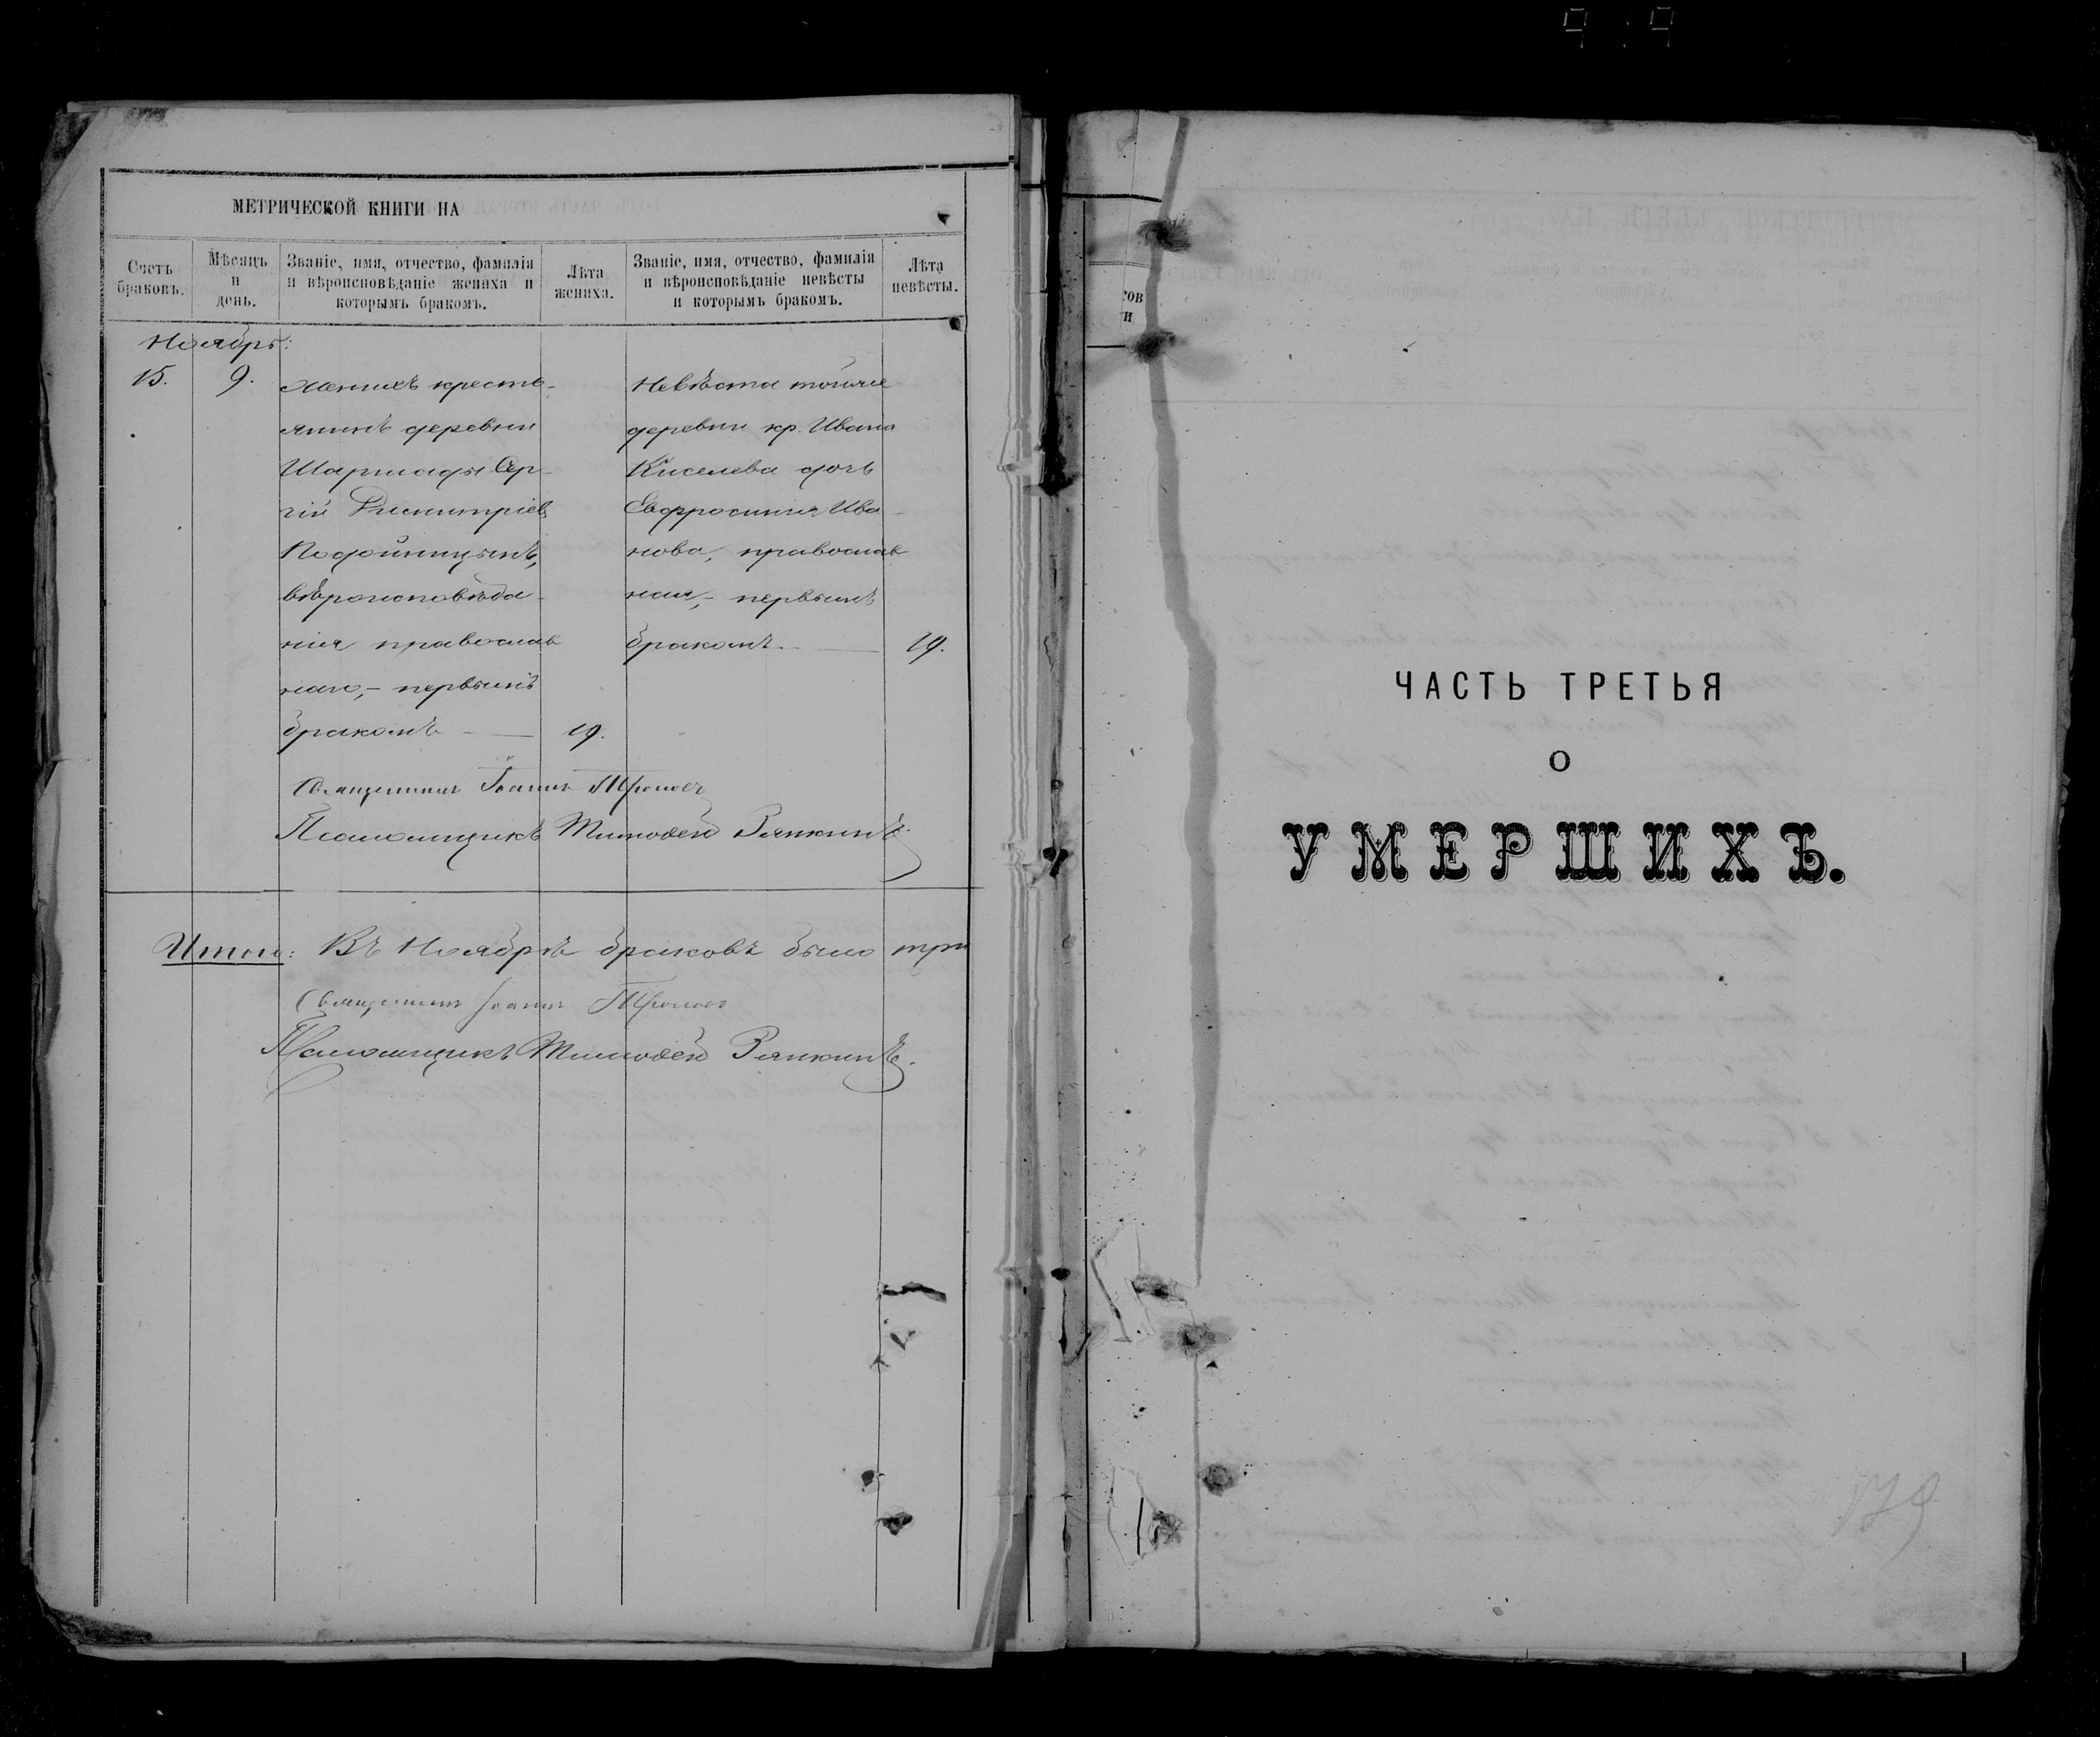 МЕТРИЧЕСКОЙ КНИГИ НА
Счетъ браковъ.
Мѣсяцъ и день.
Званіе, имя, отчество, фамилія и вѣроисповѣданіе жениха и которымъ бракомъ.
Лѣта жениха.
Званіе, имя, отчество, фамилія и вѣроисповѣданіе невѣсты и которымъ бракомъ.
Лѣта невѣсты.
Ноябрь:
15.
9.
Женихъ кресть-
янинъ деревни
Шармады Сер-
гій Димитріевъ
Подойницынъ,
вѣроисповѣда-
нія православ
наго,- первымъ
бракомъ
19.
Невѣста тойже
деревни кр. Ивана
Киселева дочь
Евфросинія Ива-
нова, православ
ная,- первымъ
бракомъ
19.
Священникъ Іоаннъ
Псаломщикъ Тимоѳей Рянкинъ.
Итого: Въ Ноябрѣ браковъ было три
Священникъ Іоаннъ
Псаломщикъ Тимоѳей Рянкинъ.
ов
и
ЧАСТЬ ТРЕТЬЯ
О
УМЕРШИХЪ.
179